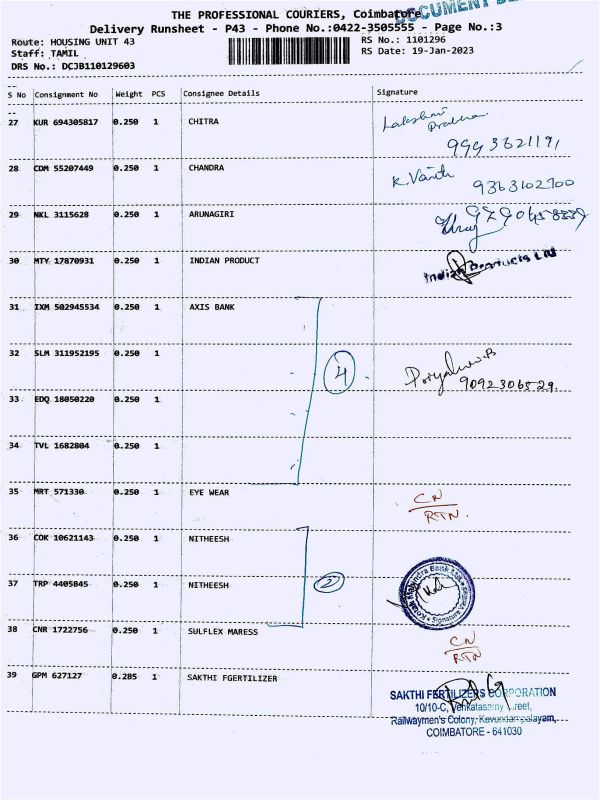 THE PROFESSIONAL COURIERS, Coimbatore
DOCUMENT
Delivery Runsheet - P43 - Phone No.:0422-3505555 - Page No.:3
Route: HOUSING UNIT 43
RS No.: 1101296
Staff: TAMIL
RS Date: 19-Jan-2023
DRS No.: DCJB110129603
S No Consignment No Weight PCS Consignee Details Signature
27 KUR 694305817 0.250 1 CHITRA
Lakshmi
Prabha
28 CDM 55207449 0.250 1 CHANDRA
9363102700
29 NKL 3115628 0.250 1 ARUNAGIRI
30 MTY 17870931 0.250 1 INDIAN PRODUCT
Indian Products Ltd
31 IXM 502945534 0.250 1 AXIS BANK
32 SLM 311952195 0.250 1
4
9092306529.
33 EDQ 18050220 0.250 1
34 TVL 1682804 0.250 1
35 MRT 571330 0.250 1 EYE WEAR
CN
RTN.
36 COK 10621143 0.250 1 NITHEESH
37 TRP 4405845 0.250 1 NITHEESH
2
Kotak Mahindra Bank Ltd
38 CNR 1722756 0.250 1 SULFLEX MARESS
CN
RTN
39 GPM 627127 0.285 1 SAKTHI FGERTILIZER
SAKTHI FERTILIZERS CORPORATION
10/10-C, Venkatasamy Street,
Railwaymen's Colony, Kavundampalayam,
COIMBATORE - 641030